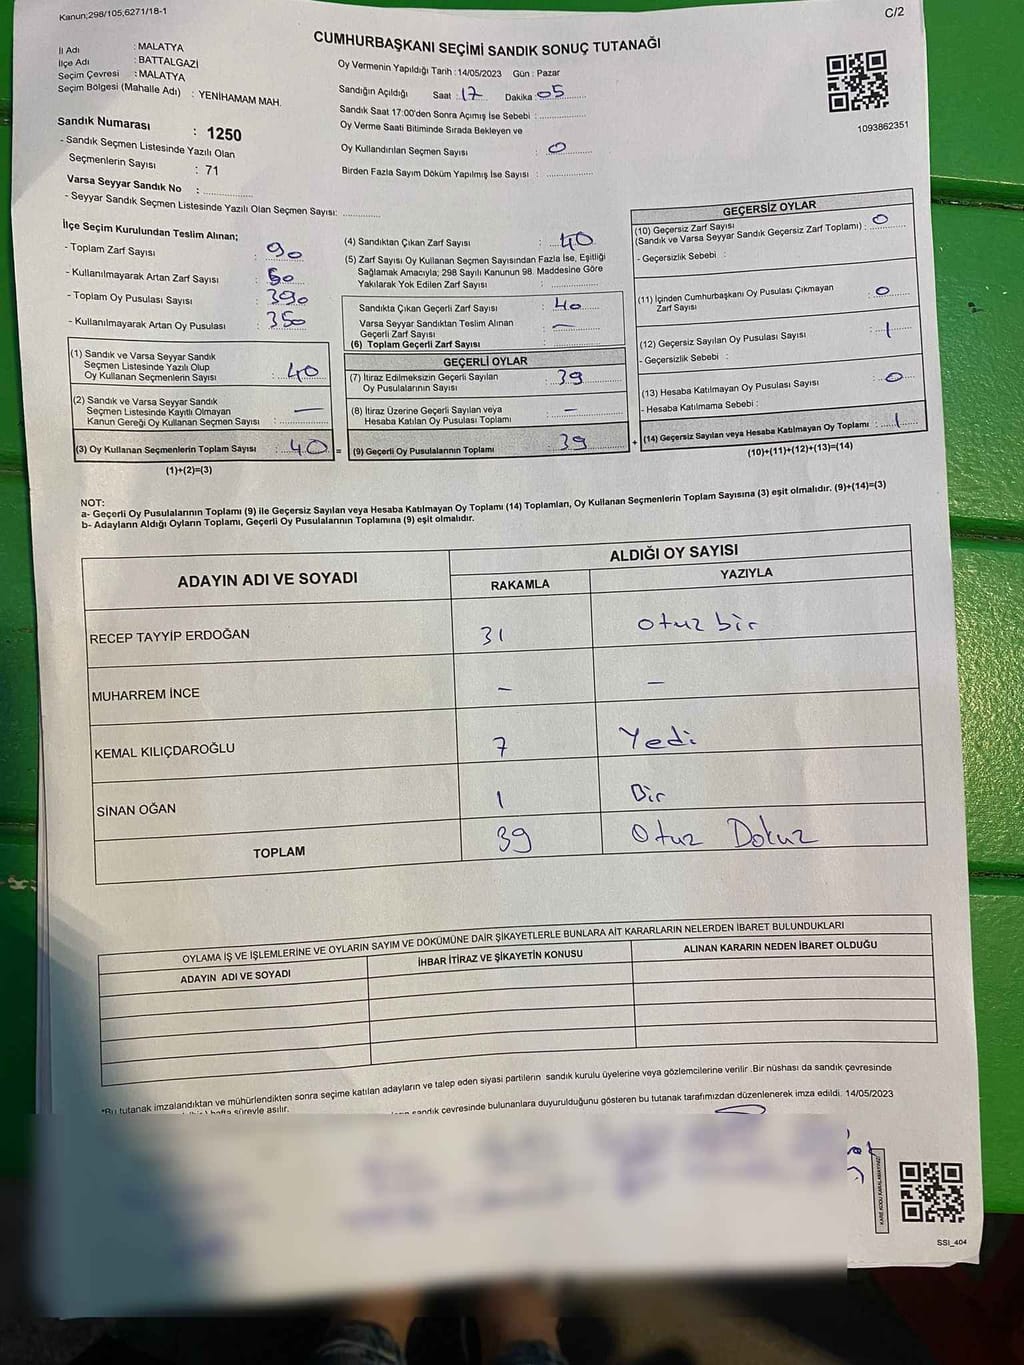 Kanun;298/105,6271/18-1
C/2
CUMHURBAŞKANI SEÇİMİ SANDIK SONUÇ TUTANAĞI
İl Adı : MALATYA
İlçe Adı : BATTALGAZİ
Seçim Çevresi : MALATYA
Seçim Bölgesi (Mahalle Adı) : YENİHAMAM MAH.
Sandık Numarası : 1250
- Sandık Seçmen Listesinde Yazılı Olan
Seçmenlerin Sayısı : 71
Varsa Seyyar Sandık No :
- Seyyar Sandık Seçmen Listesinde Yazılı Olan Seçmen Sayısı:
Oy Vermenin Yapıldığı Tarih :14/05/2023 Gün : Pazar
Sandığın Açıldığı Saat : 17 Dakika : 05
Sandık Saat 17:00'den Sonra Açımış İse Sebebi :
Oy Verme Saati Bitiminde Sırada Bekleyen ve
Oy Kullandırılan Seçmen Sayısı : 0
Birden Fazla Sayım Döküm Yapılmış İse Sayısı :
1093862351
İlçe Seçim Kurulundan Teslim Alınan;
- Toplam Zarf Sayısı : 90
- Kullanılmayarak Artan Zarf Sayısı : 50
- Toplam Oy Pusulası Sayısı : 390
- Kullanılmayarak Artan Oy Pusulası : 350
(1) Sandık ve Varsa Seyyar Sandık
Seçmen Listesinde Yazılı Olup
Oy Kullanan Seçmenlerin Sayısı : 40
(2) Sandık ve Varsa Seyyar Sandık
Seçmen Listesinde Kayıtlı Olmayan
Kanun Gereği Oy Kullanan Seçmen Sayısı : —
(3) Oy Kullanan Seçmenlerin Toplam Sayısı : 40 =
(1)+(2)=(3)
(4) Sandıktan Çıkan Zarf Sayısı : 40
(5) Zarf Sayısı Oy Kullanan Seçmen Sayısından Fazla İse, Eşitliği
Sağlamak Amacıyla; 298 Sayılı Kanunun 98. Maddesine Göre
Yakılarak Yok Edilen Zarf Sayısı :
Sandıkta Çıkan Geçerli Zarf Sayısı : 40
Varsa Seyyar Sandıktan Teslim Alınan
Geçerli Zarf Sayısı : —
(6) Toplam Geçerli Zarf Sayısı :
GEÇERLİ OYLAR
(7) İtiraz Edilmeksizin Geçerli Sayılan
Oy Pusulalarının Sayısı : 39
(8) İtiraz Üzerine Geçerli Sayılan veya
Hesaba Katılan Oy Pusulası Toplamı : —
(9) Geçerli Oy Pusulalarının Toplamı : 39 +
GEÇERSİZ OYLAR
(10) Geçersiz Zarf Sayısı
(Sandık ve Varsa Seyyar Sandık Geçersiz Zarf Toplamı) : 0
- Geçersizlik Sebebi :
(11) İçinden Cumhurbaşkanı Oy Pusulası Çıkmayan
Zarf Sayısı : 0
(12) Geçersiz Sayılan Oy Pusulası Sayısı : 1
- Geçersizlik Sebebi :
(13) Hesaba Katılmayan Oy Pusulası Sayısı : 0
- Hesaba Katılmama Sebebi :
(14) Geçersiz Sayılan veya Hesaba Katılmayan Oy Toplamı : 1
(10)+(11)+(12)+(13)=(14)
NOT:
a- Geçerli Oy Pusulalarının Toplamı (9) ile Geçersiz Sayılan veya Hesaba Katılmayan Oy Toplamı (14) Toplamları, Oy Kullanan Seçmenlerin Toplam Sayısına (3) eşit olmalıdır. (9)+(14)=(3)
b- Adayların Aldığı Oyların Toplamı, Geçerli Oy Pusulalarının Toplamına (9) eşit olmalıdır.
ADAYIN ADI VE SOYADI ALDIĞI OY SAYISI
RAKAMLA YAZIYLA
RECEP TAYYİP ERDOĞAN 31 Otuz bir
MUHARREM İNCE – –
KEMAL KILIÇDAROĞLU 7 Yedi
SİNAN OĞAN 1 Bir
TOPLAM 39 Otuz Dokuz
OYLAMA İŞ VE İŞLEMLERİNE VE OYLARIN SAYIM VE DÖKÜMÜNE DAİR ŞİKAYETLERLE BUNLARA AİT KARARLARIN NELERDEN İBARET BULUNDUKLARI
ADAYIN ADI VE SOYADI İHBAR İTİRAZ VE ŞİKAYETİN KONUSU ALINAN KARARIN NEDEN İBARET OLDUĞU
*Bu tutanak imzalandıktan ve mühürlendikten sonra seçime katılan adayların ve talep eden siyasi partilerin sandık kurulu üyelerine veya gözlemcilerine verilir .Bir nüshası da sandık çevresinde
hafta süreyle asılır.
sandık çevresinde bulunanlara duyurulduğunu gösteren bu tutanak tarafımızdan düzenlenerek imza edildi. 14/05/2023
KARE KODU KARALAMAYINIZ
SSI_404